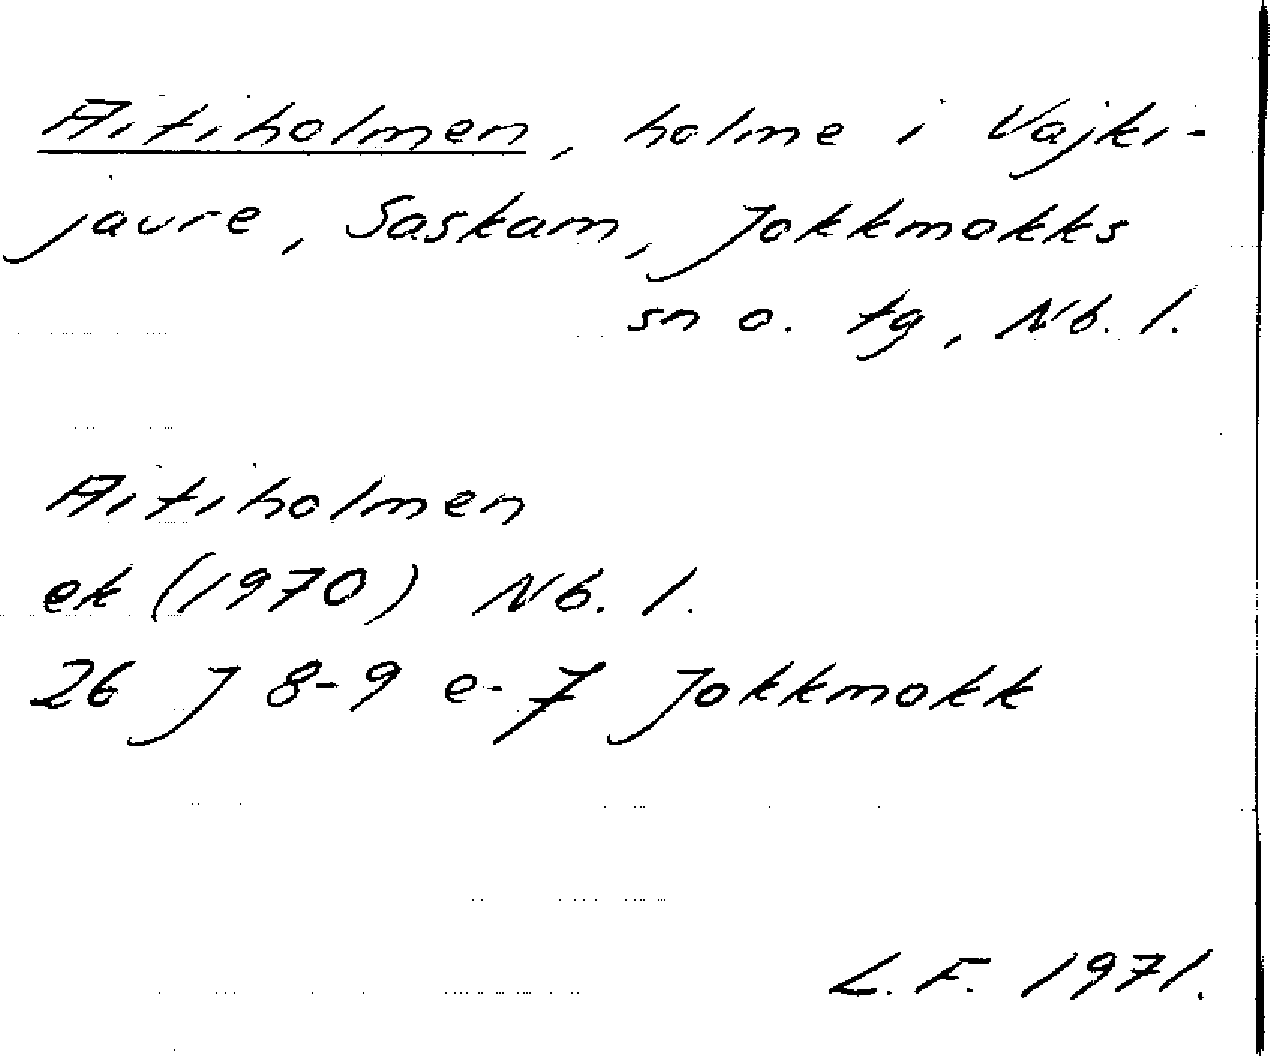 Aitiholmen, holme i Vajki-
jaure, Saskam, Jokkmokks
sn o. tg, Nb. l.
Aitiholmen
ek (1970) Nb. l.
26 J 8-9 e-7 Jokkmokk
L.F. 1971.